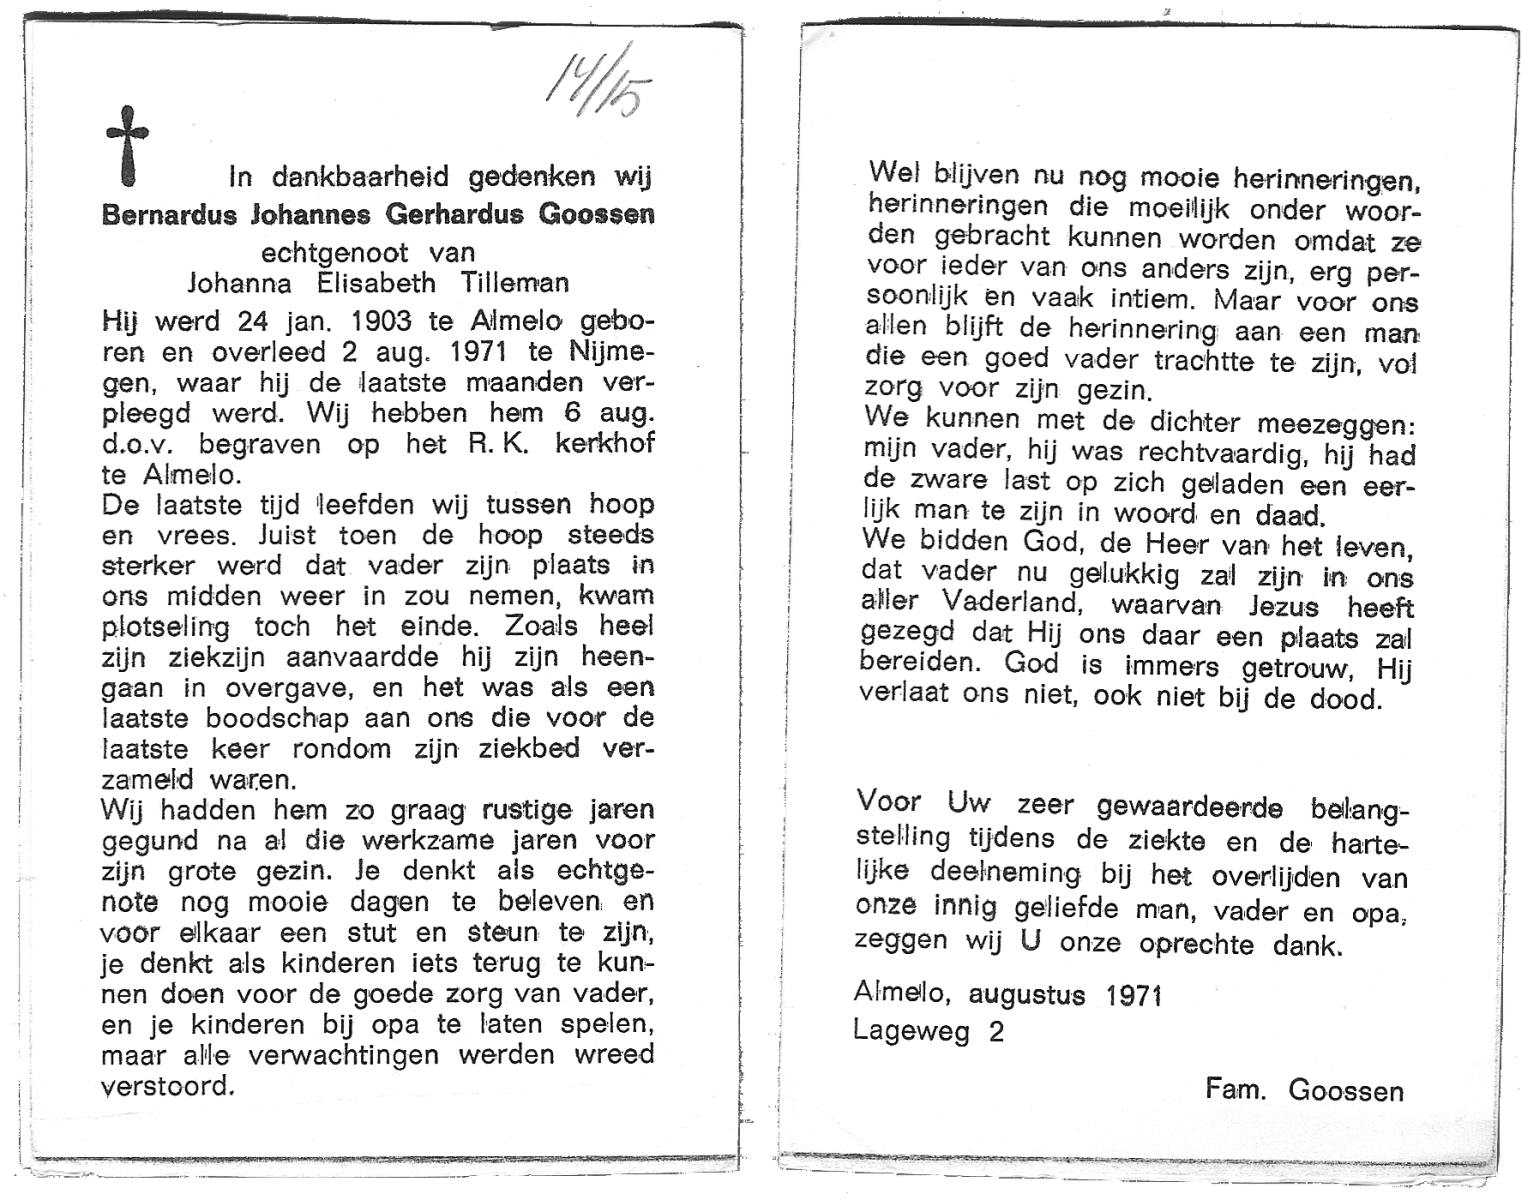 14/15
In dankbaarheid gedenken wij
Bernardus Johannes Gerhardus Goossen
echtgenoot van
Johanna Elisabeth Tilleman
Hij werd 24 jan. 1903 te Almelo gebo-
ren en overleed 2 aug. 1971 te Nijme-
gen, waar hij de laatste maanden ver-
pleegd werd. Wij hebben hem 6 aug.
d.o.v. begraven op het R. K. kerkhof
te Almelo.
De laatste tijd leefden wij tussen hoop
en vrees. Juist toen de hoop steeds
sterker werd dat vader zijn plaats in
ons midden weer in zou nemen, kwam
plotseling toch het einde. Zoals heel
zijn ziekzijn aanvaardde hij zijn heen-
gaan in overgave, en het was als een
laatste boodschap aan ons die voor de
laatste keer rondom zijn ziekbed ver-
zameld waren.
Wij hadden hem zo graag rustige jaren
gegund na al die werkzame jaren voor
zijn grote gezin. Je denkt als echtge-
note nog mooie dagen te beleven en
voor elkaar een stut en steun te zijn,
je denkt als kinderen iets terug te kun-
nen doen voor de goede zorg van vader,
en je kinderen bij opa te laten spelen,
maar alle verwachtingen werden wreed
verstoord.
Wel blijven nu nog mooie herinneringen,
herinneringen die moeilijk onder woor-
den gebracht kunnen worden omdat ze
voor ieder van ons anders zijn, erg per-
soonlijk en vaak intiem. Maar voor ons
allen blijft de herinnering aan een man
die een goed vader trachtte te zijn, vol
zorg voor zijn gezin.
We kunnen met de dichter meezeggen:
mijn vader, hij was rechtvaardig, hij had
de zware last op zich geladen een eer-
lijk man te zijn in woord en daad.
We bidden God, de Heer van het leven,
dat vader nu gelukkig zal zijn in ons
aller Vaderland, waarvan Jezus heeft
gezegd dat Hij ons daar een plaats zal
bereiden. God is immers getrouw, Hij
verlaat ons niet, ook niet bij de dood.
Voor Uw zeer gewaardeerde belang-
stelling tijdens de ziekte en de harte-
lijke deelneming bij het overlijden van
onze innig geliefde man, vader en opa,
zeggen wij U onze oprechte dank.
Almelo, augustus 1971
Lageweg 2
Fam. Goossen